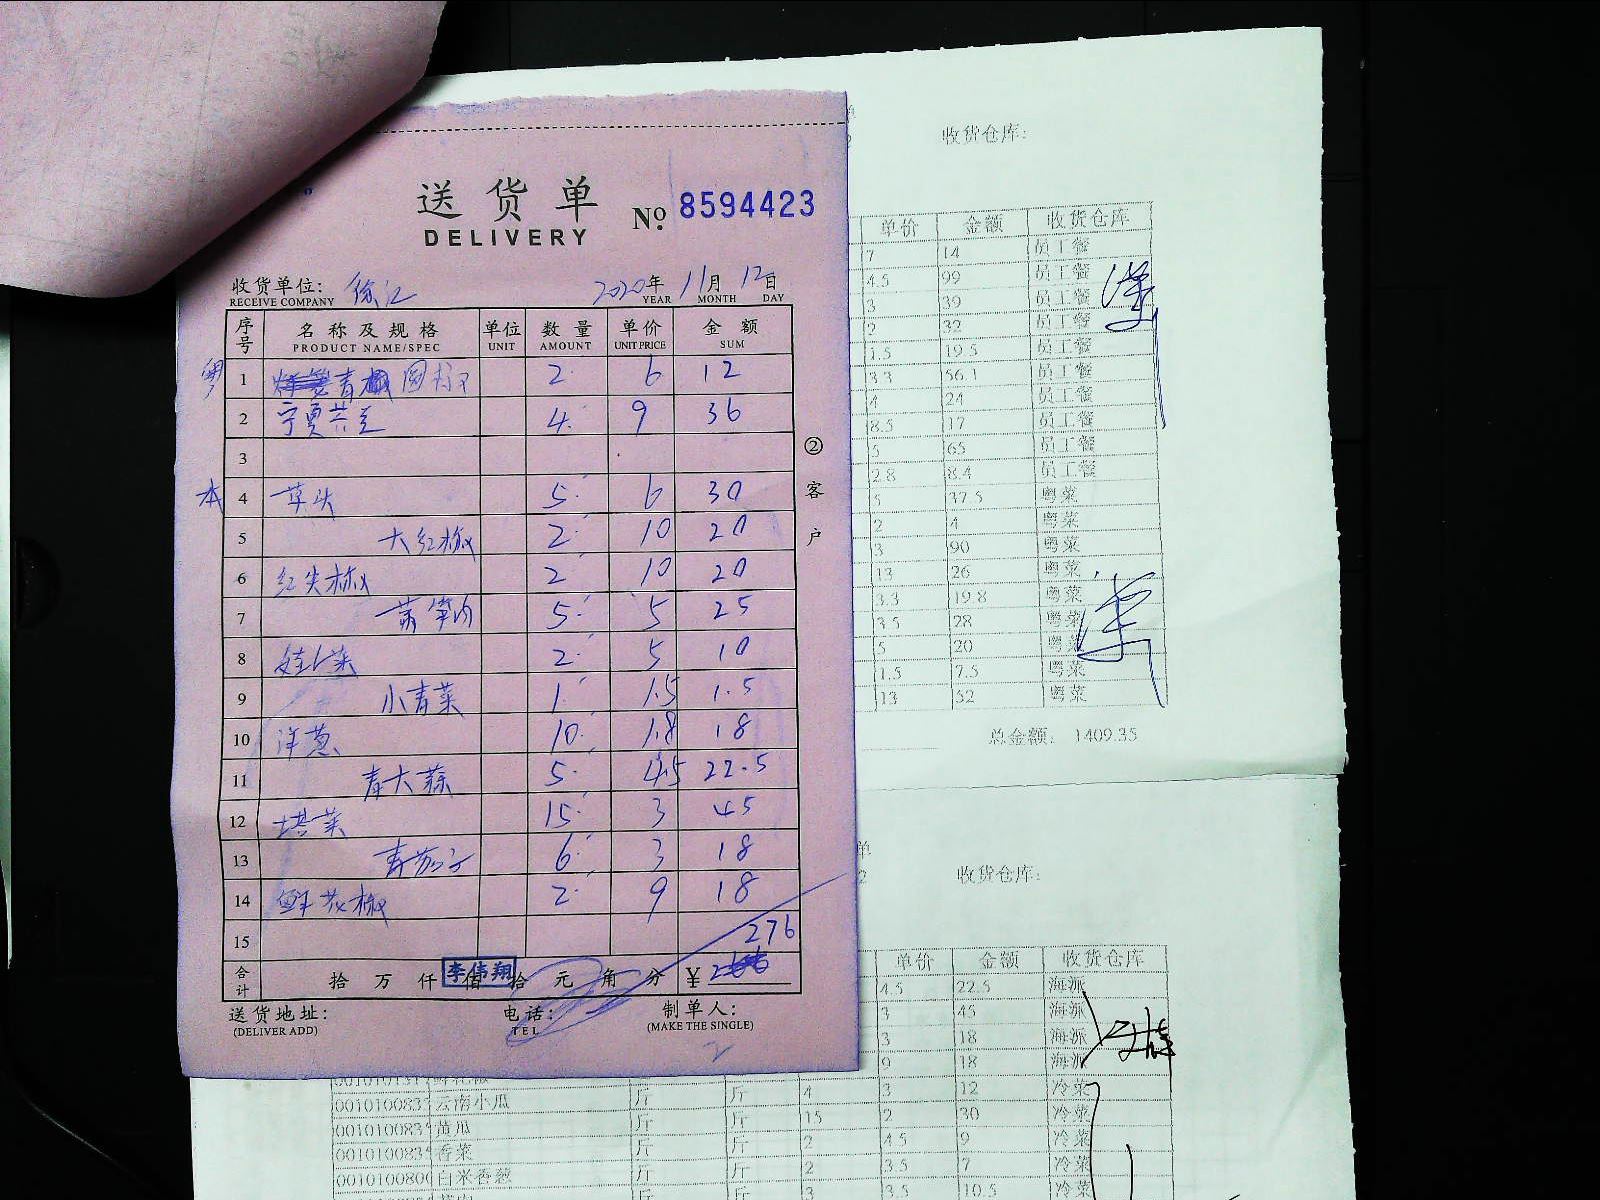 送货单
DELIVERY
No. 8594423
收货单位: 徐汇 2020年 11月 12日
RECEIVE COMPANY YEAR MONTH DAY
序号 名称及规格 单位 数量 单价 金额
PRODUCT NAME/SPEC UNIT AMOUNT UNIT PRICE SUM
1 2 6 12
2 宁夏 4 9 36
3
本 4 草头 5 6 30
5 大红椒 2 10 20
6 红尖椒 2 10 20
7 莴笋 5 5 25
8 娃娃菜 2 5 10
9 小青菜 1 1.5 1.5
10 洋葱 10 1.8 18
11 青大蒜 5 4.5 22.5
12 塔菜 15 3 45
13 青茄子 6 3 18
14 鲜花椒 2 9 18
15 276
合计 拾 万 仟 佰 拾 元 角 分 ¥
李伟翔
送货地址: 电话: 制单人:
(DELIVER ADD) TEL (MAKE THE SINGLE)
②客户
收货仓库:
单价 金额 收货仓库
7 14 员工餐
4.5 99 员工餐
3 39 员工餐
2 32 员工餐
1.5 19.5 员工餐
3.3 56.1 员工餐
4 24 员工餐
8.5 17 员工餐
5 65 员工餐
2.8 8.4 员工餐
5 37.5 粤菜
2 4 粤菜
3 90 粤菜
13 26 粤菜
3.3 19.8 粤菜
3.5 28 粤菜
5 20 粤菜
1.5 7.5 粤菜
13 52 粤菜
总金额: 1409.35
单
2 收货仓库:
单价 金额 收货仓库
4.5 22.5 海派
3 45 海派
3 18 海派
9 18 海派
云南小瓜 斤 斤 4 3 12 冷菜
黄瓜 斤 斤 15 2 30 冷菜
香菜 斤 斤 2 4.5 9 冷菜
白米香葱 斤 斤 2 3.5 7 冷菜
斤 斤 3 3.5 10.5 冷菜